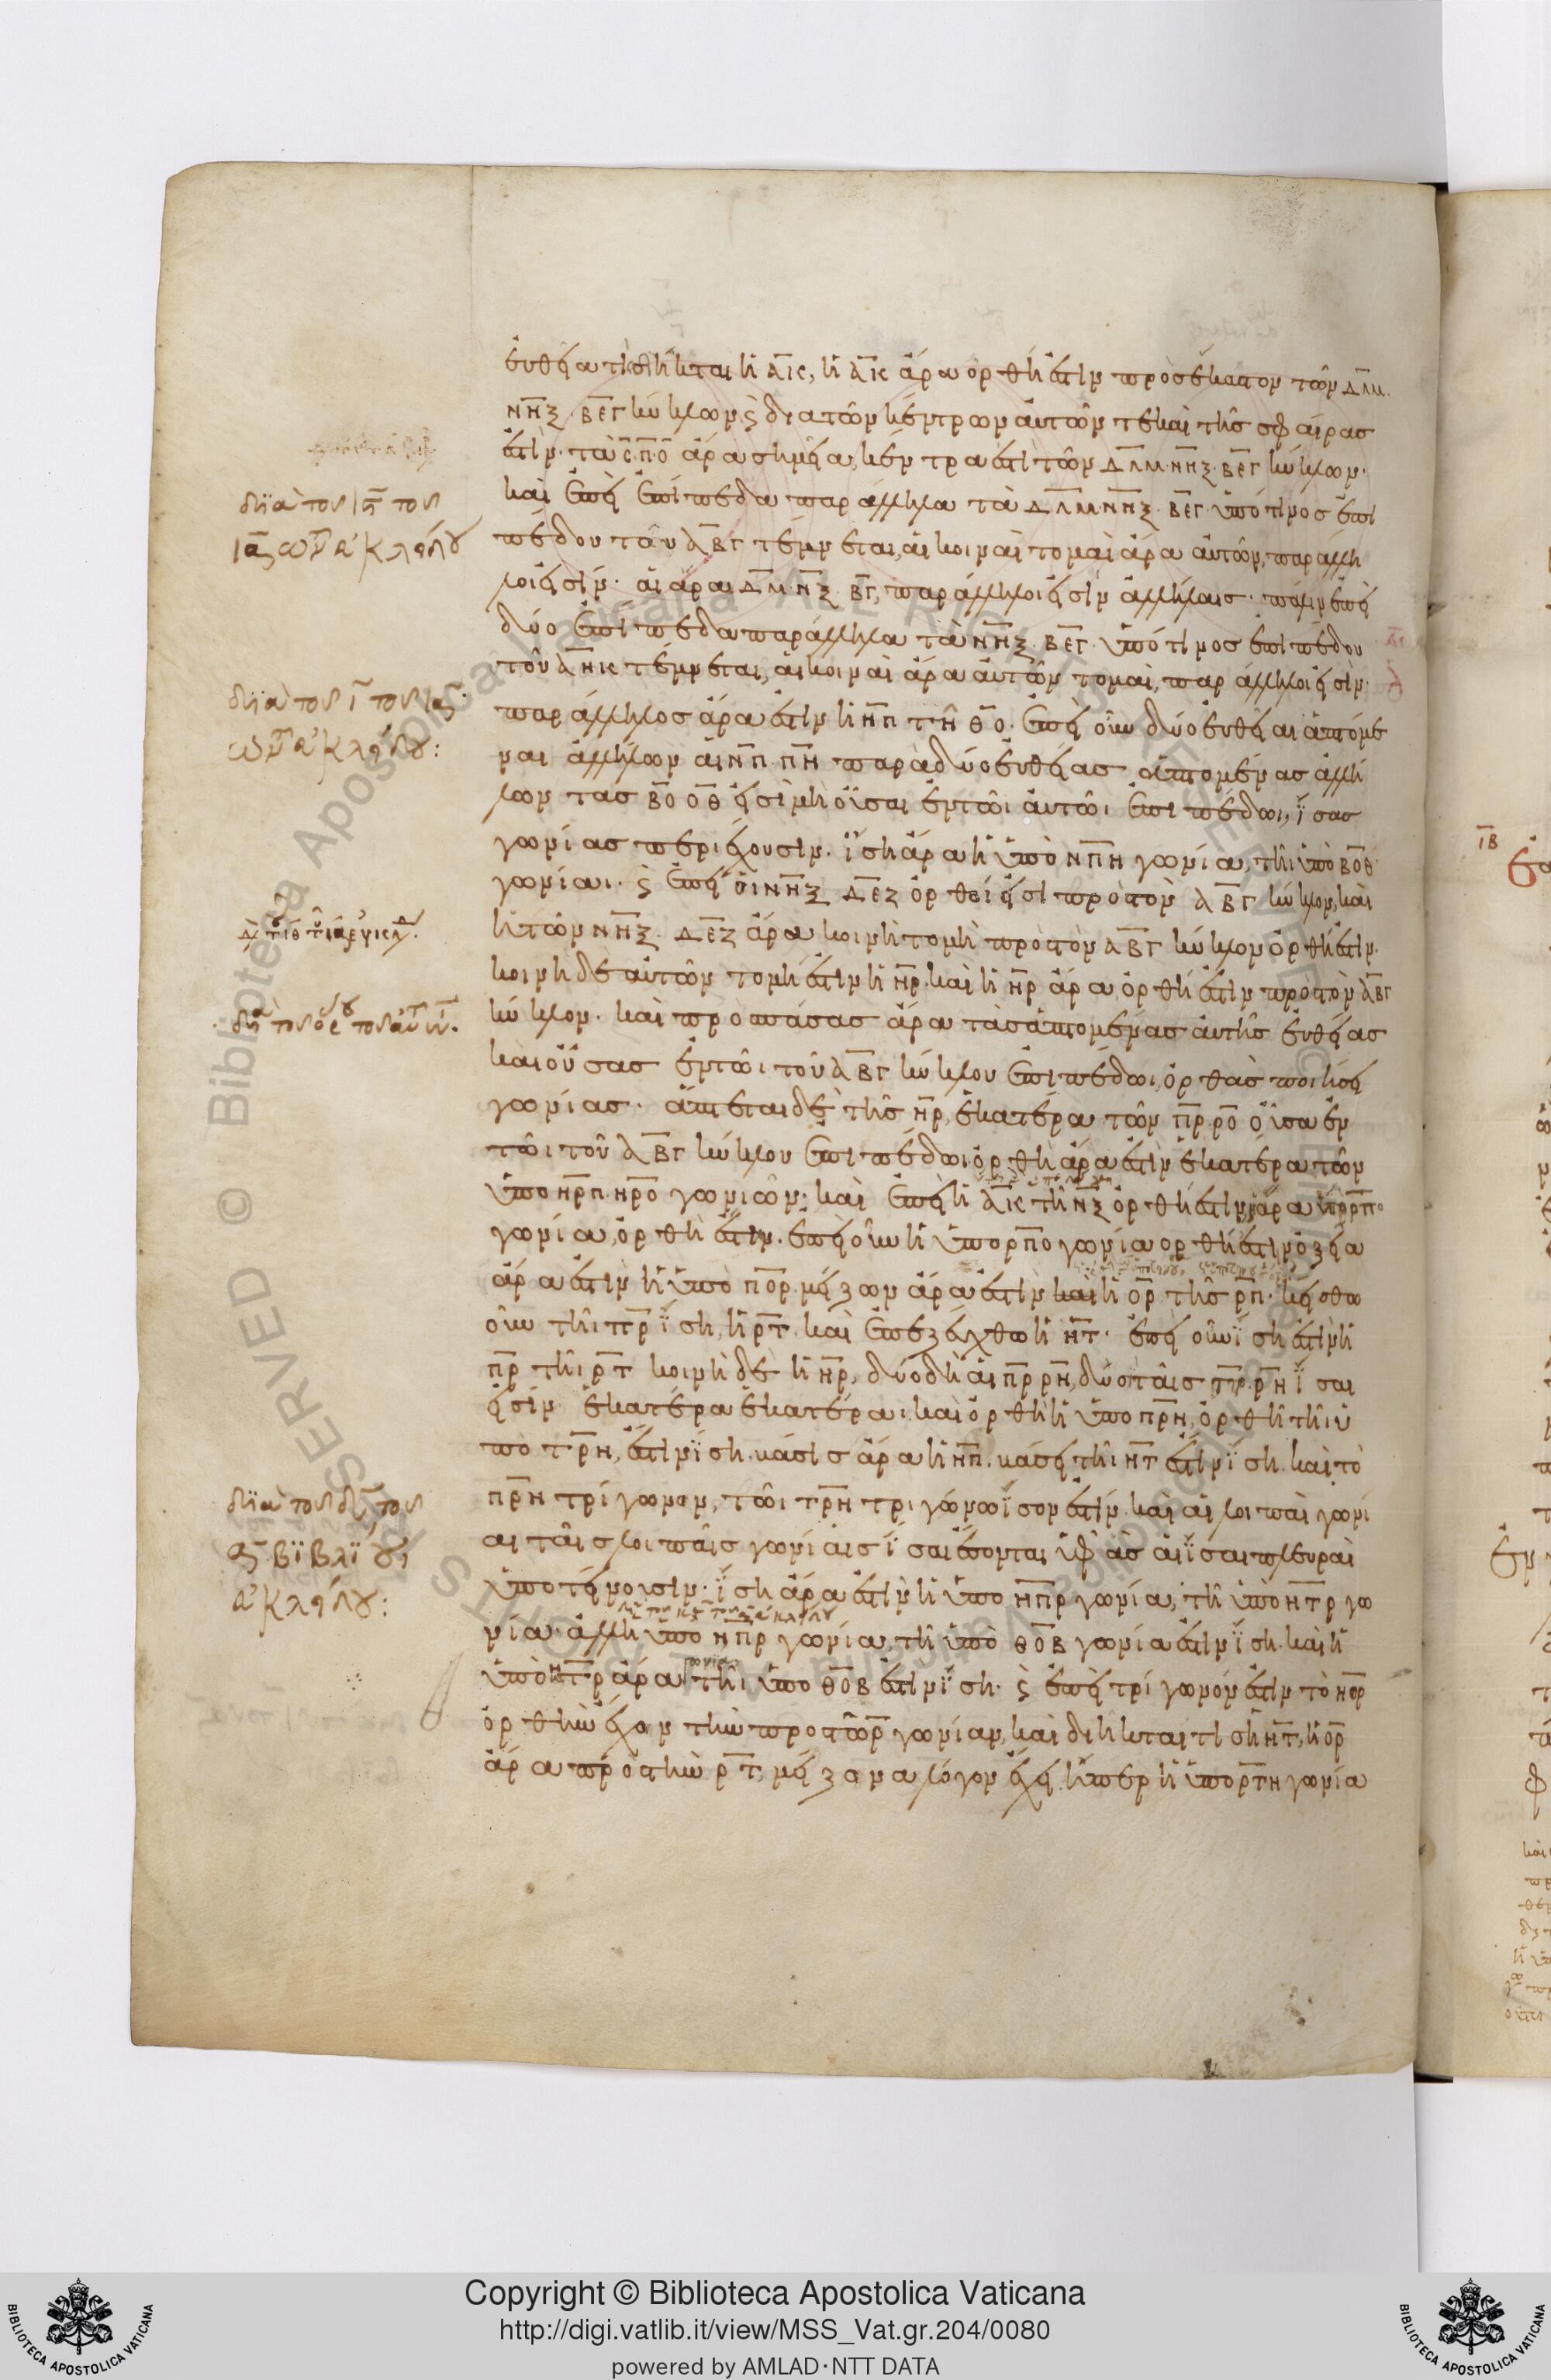 εὐθεῖα τίς διῆκται ἡ ΑΚ, ἡ ΑΚ ἄρα ὀρθή ἐστιν πρὸς ἕκαστον τῶν ΔΛΜ.
ΝΗΞ. ΒΕΓ κύκλων ϗ διὰ τῶν κέντρων αὐτῶν τε καὶ τῆς σφαίρας
ἐστίν. τὰ Ϲ Π Ο ἄρα σημεῖα, κέντρα ἐστὶ τῶν ΔΛΜ. ΝΗΞ. ΒΕΓ κύκλων.
καὶ ἐπεὶ ἐπίπεδα παράλληλα τὰ ΔΛΜ. ΝΗΞ. ΒΕΓ. ὑπό τινος ἐπι
πέδου τοῦ ΑΒΓ τέμνεται, αἱ κοιναὶ τομαὶ ἄρα αὐτῶν, παράλλη
λοί εἰσιν. αἱ ἄρα ΔΜ. ΝΞ. ΒΓ, παράλληλοί εἰσιν ἀλλήλαις. πάλιν ἐπεὶ
δύο ἐπίπεδα παράλληλα τὰ ΝΗΞ. ΒΕΓ. ὑπό τινος ἐπιπέδου
τοῦ ΑΗΚ τέμνεται, αἱ κοιναὶ ἄρα αὐτῶν τομαὶ, παράλληλοί εἰσιν.
παράλληλος ἄρα ἐστὶν ἡ ΗΠ τῇ ΘΟ. ἐπεὶ οὖν δύο εὐθεῖαι ἁπτόμε
ναι ἀλλήλων αἱ ΝΠ. ΠΗ παρὰ δύο εὐθείας ἁπτομένας ἀλλή
λων τὰς ΒΟ ΟΘ εἰσὶ μὴ οὖσαι ἐν τῶι αὐτῶι ἐπιπέδωι, ἴσας
γωνίας περιέχουσιν. ἴση ἄρα ἡ ὑπὸ ΝΠΗ γωνία, τῆι ὑπὸ ΒΟΘ
γωνίαι. ϗ ἐπεὶ οἱ ΝΗΞ ΔΕΖ ὀρθοί εἰσι πρὸς τὸν ΑΒΓ κύκλον, καὶ
ἡ τῶν ΝΗΞ. ΔΕΖ ἄρα κοινὴ τομὴ πρὸς τὸν ΑΒΓ κύκλον ὀρθή ἐστιν.
κοινὴ δὲ αὐτῶν τομή ἐστιν ἡ ΗΡ. καὶ ἡ ΗΡ ἄρα, ὀρθή ἐστιν πρὸς τὸν ΑΒΓ
κύκλον. καὶ πρὸς πάσας ἄρα τὰς ἁπτομένας αὐτῆς εὐθείας
καὶ οὔσας ἐν τῶι τοῦ ΑΒΓ κύκλου ἐπιπέδωι, ὀρθὰς ποιήσει
γωνίας. ἅπτεται δὲ τῆς ΗΡ, ἑκατέρα τῶν ΠΡ. ΡΟ οὖσα ἐν
τῶι τοῦ ΑΒΓ κύκλου ἐπιπέδωι. ὀρθὴ ἄρα ἐστὶν ἑκατέρα τῶν
ὑπὸ ΗΡΠ. ΗΡΟ γωνιῶν. καὶ ἐπεὶ ἡ ΑΚ τῆι ΝΞ ὀρθή ἐστιν, ἄρα ὑπὸ ΡΠΟ
γωνία, ὀρθή ἐστιν. ἐπεὶ οὖν ἡ ὑπὸ ΡΠΟ γωνία ὀρθή ἐστιν, ὀξεῖα
ἄρα ἐστὶν ἡ ὑπὸ ΠΟΡ. μείζων ἄρα ἐστὶν καὶ ἡ ΟΡ τῆς ΡΠ. κείσθω
οὖν τῆι ΠΡ ἴση, ἡ ΡΤ. καὶ ἐπεζεύχθω ἡ ΗΤ. ἐπεὶ οὖν ἴση ἐστὶν ἡ
ΠΡ τῆι ΡΤ κοινὴ δὲ ἡ ΗΡ, δύο δὴ αἱ ΠΡ ΡΗ, δύο ταῖς ΤΡ. ΡΗ ἴσαι
εἰσὶν ἑκατέρα ἑκατέραι. καὶ ὀρθὴ ἡ ὑπὸ ΠΡΗ, ὀρθῆ τῆι ὑ
πὸ ΤΡΗ, ἐστὶν ἴση. βάσις ἄρα ἡ ΗΠ. βάσει τῆι ΗΤ ἐστὶν ἴση. καὶ τὸ
ΠΡΗ τρίγωνον, τῶι ΤΡΗ τριγώνωι ἴσον ἐστίν. καὶ αἱ λοιπαὶ γωνί
αι ταῖς λοιπαῖς γωνίαις ἴσαι ἔσονται ὑφ ἃς αἱ ἴσαι πλευραὶ
ὑποτείνουσιν. ἴση ἄρα ἐστὶν ἡ ὑπὸ ΗΠΡ γωνία, τῆ ὑπὸ ΗΤΡ γω
νία. ἀλλ ἡ ὑπὸ ΗΠΡ γωνία, τῆ ὑπὸ ΘΟΒ γωνία ἐστὶν ἴση. καὶ ἡ
ὑπὸ ΗΤΡ ἄρα γωνία τῆι ὑπὸ ΘΟΒ ἐστὶν ἴση. ϗ ἐπεὶ τρίγωνόν ἐστιν τὸ ΗΟΡ
ὀρθὴν ἔχον τὴν πρὸς τῶ Ρ γωνίαν, καὶ διῆκται τίς ἡ ΗΤ, ἡ ΟΡ
ἄρα πρὸς τὴν ΡΤ, μείζονα λόγον ἔχει ἤπερ ἡ ὑπὸ ΡΤΗ γωνία
διὰ τοῦ ιϛ τοῦ
ια τῶν εὐκλείδου
διὰ τοῦ ι τοῦ ια
τῶν εὐκλείδου:
διὰ τοῦ δ τοῦ
α βιβλίου
εὐκλείδου:
ΙΒ
Copyright © Biblioteca Apostolica Vaticana
http://digi.vatlib.it/view/MSS_Vat.gr.204/0080
powered by AMLAD·NTT DATA